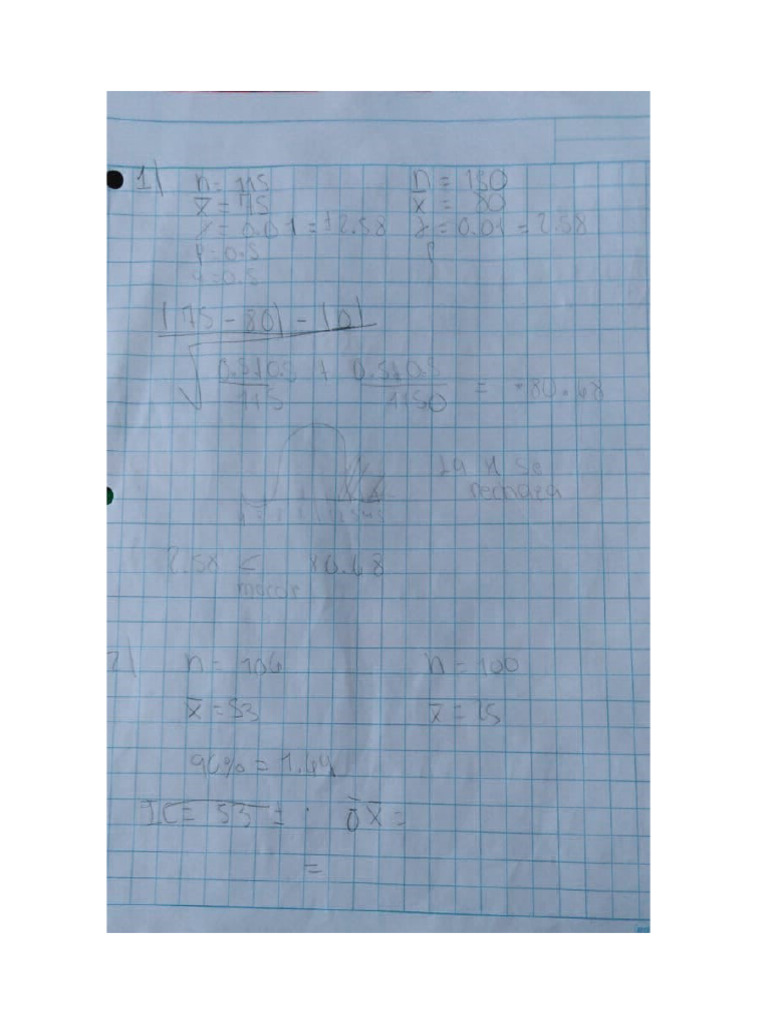 1) n = 115 n = 150
x̄ = 75 x̄ = 80
= 0.01 = ±2.58 = 0.01 = 2.58
p = 0.5 p
q = 0.5
(75 - 80) - (0)
√ 0.5*0.5 / 115 + 0.5*0.5 / 1150 = -80.68
la H se
rechaza
2.58 <
menor
2) n = 106 n = 100
x̄ = 53 x̄ = 25
IC = 53 ± x̄ =
=